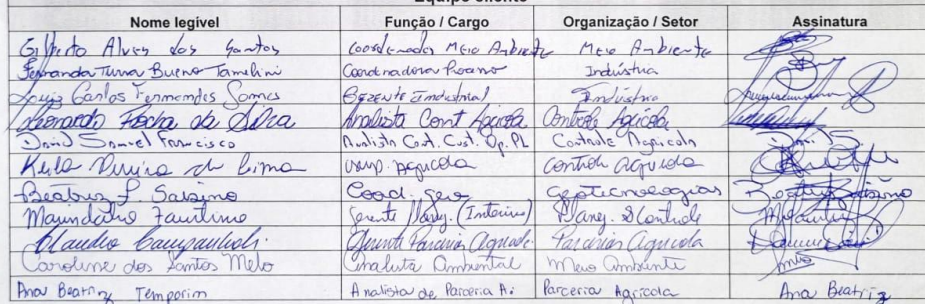 Equipe cliente
Nome legível Função / Cargo Organização / Setor Assinatura
Gilberto Alves dos Santos Coordenador Meio Ambiente Meio Ambiente
Fernanda Turra Bueno Tamelini Coordenadora Indústria
Luiz Carlos Fernandes Gomes Gerente Industrial Indústria
Leonardo Rocha da Silva Analista Cont Agrícola Controle Agrícola
David Samuel Francisco Analista Cont. Cust. Op. PL Controle Agrícola
Keila de Lima Agrícola Controle Agrícola
Beatriz F. Sabino Coord. Geo Geotecnologias Beatriz Sabino
Faustino Gerente Planej. (Interino) Planej. & Controle
Claudio Gerente Parcerias Agrícola Parceria Agrícola
Caroline dos Santos Melo Analista Ambiental Meio Ambiente
Ana Beatriz Temporim Analista de Parceria A. Parceria Agrícola Ana Beatriz